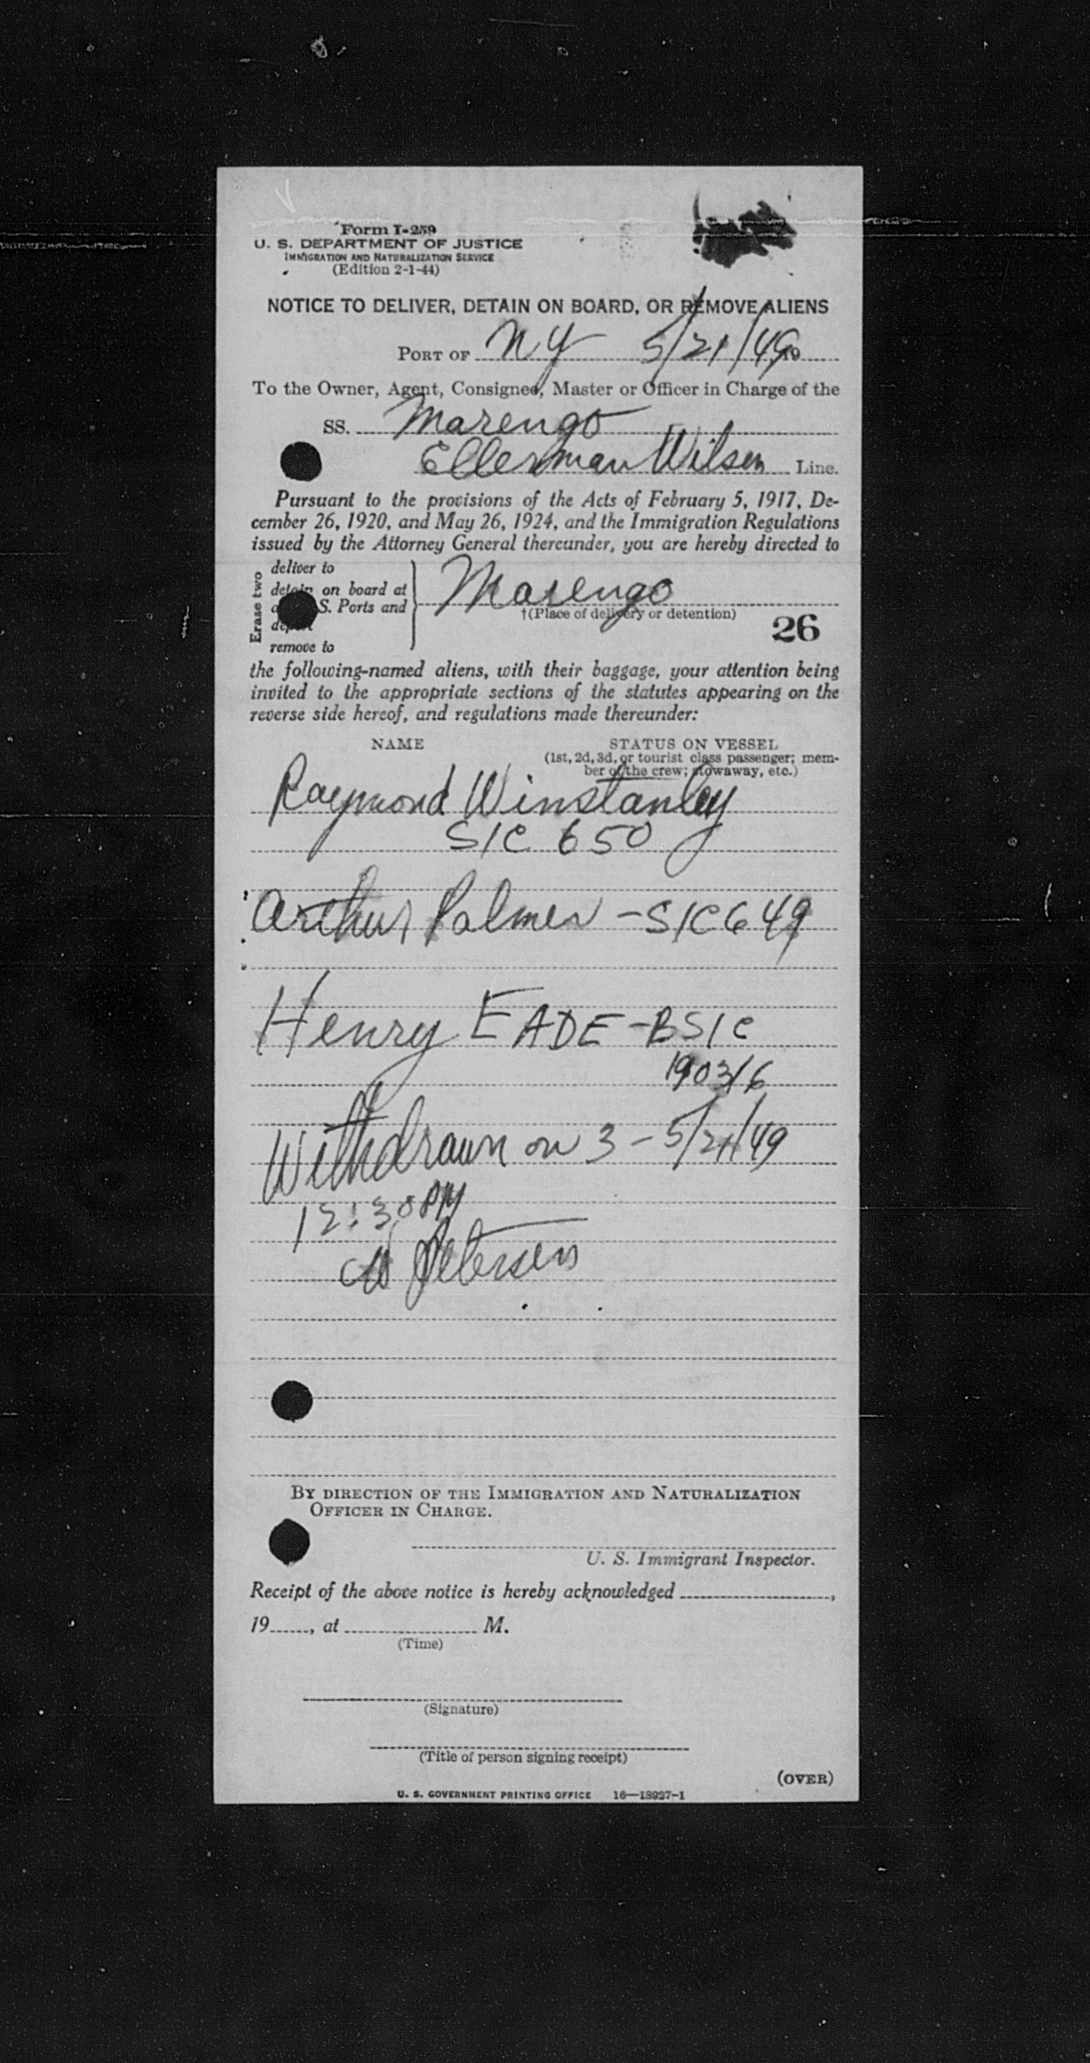 Form I-259
U. S. DEPARTMENT OF JUSTICE
IMMIGRATION AND NATURALIZATION SERVICE
(Edition 2-1-44)
NOTICE TO DELIVER, DETAIN ON BOARD, OR REMOVE ALIENS
PORT OF NY 5/21/49 19
To the Owner, Agent, Consignee, Master or Officer in Charge of the
SS. Marengo
Ellerman Wilson Line.
Pursuant to the provisions of the Acts of February 5, 1917, De-
cember 26, 1920, and May 26, 1924, and the Immigration Regulations
issued by the Attorney General thereunder, you are hereby directed to
Erase two
deliver to
detain on board at
S. Ports and
remove to
Marengo
†(Place of delivery or detention)
26
the following-named aliens, with their baggage, your attention being
invited to the appropriate sections of the statutes appearing on the
reverse side hereof, and regulations made thereunder:
NAME STATUS ON VESSEL
(1st, 2d, 3d, or tourist class passenger; mem-
ber of the crew; stowaway, etc.)
Raymond Winstanley
S/C 650
Arthur Palmer - S/C 649
Henry EADE - BS/C
1903/6
Withdrawn on 3 - 5/21/49
12:30 PM
CW Petersen
BY DIRECTION OF THE IMMIGRATION AND NATURALIZATION
OFFICER IN CHARGE.
U. S. Immigrant Inspector.
Receipt of the above notice is hereby acknowledged ,
19 , at M.
(Time)
(Signature)
(Title of person signing receipt)
(OVER)
U. S. GOVERNMENT PRINTING OFFICE 16—18927-1